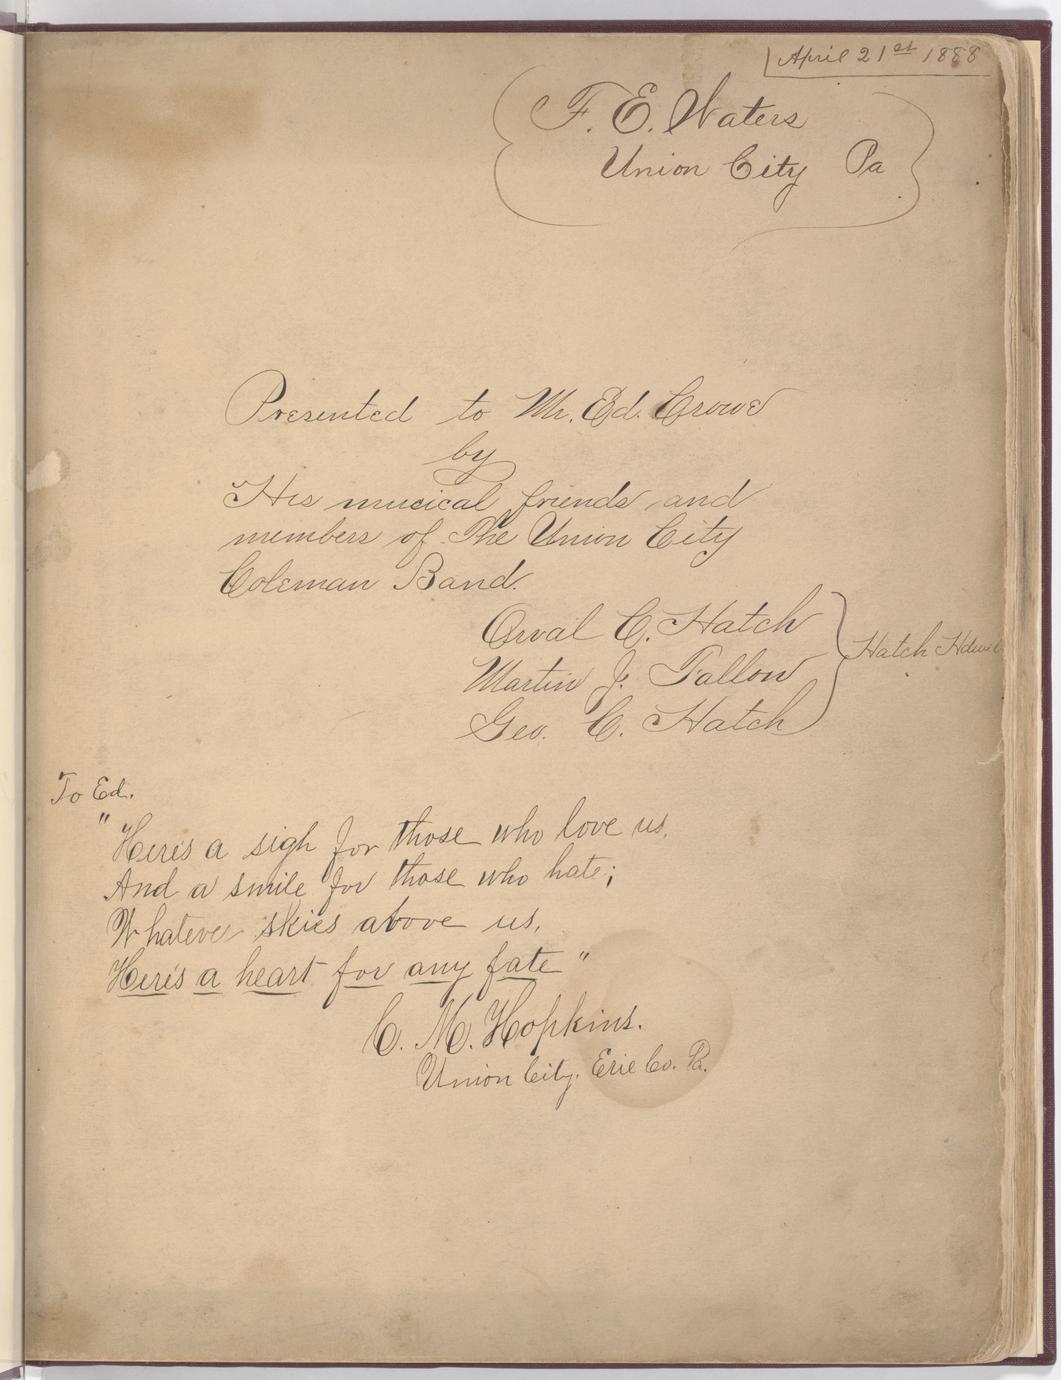 April 21st 1888
F. E. Waters
Union City Pa
Presented to Mr. Ed. Crowe
by
His musical friends and
members of The Union City
Coleman Band.
Orval C. Hatch
Martin J. Fallow
Geo. C. Hatch
Hatch
To Ed.
" Here's a sigh for those who love us,
And a smile for those who hate;
Whatever skies above us,
Here's a heart for any fate "
C. M. Hopkins.
Union City, Erie Co. Pa.